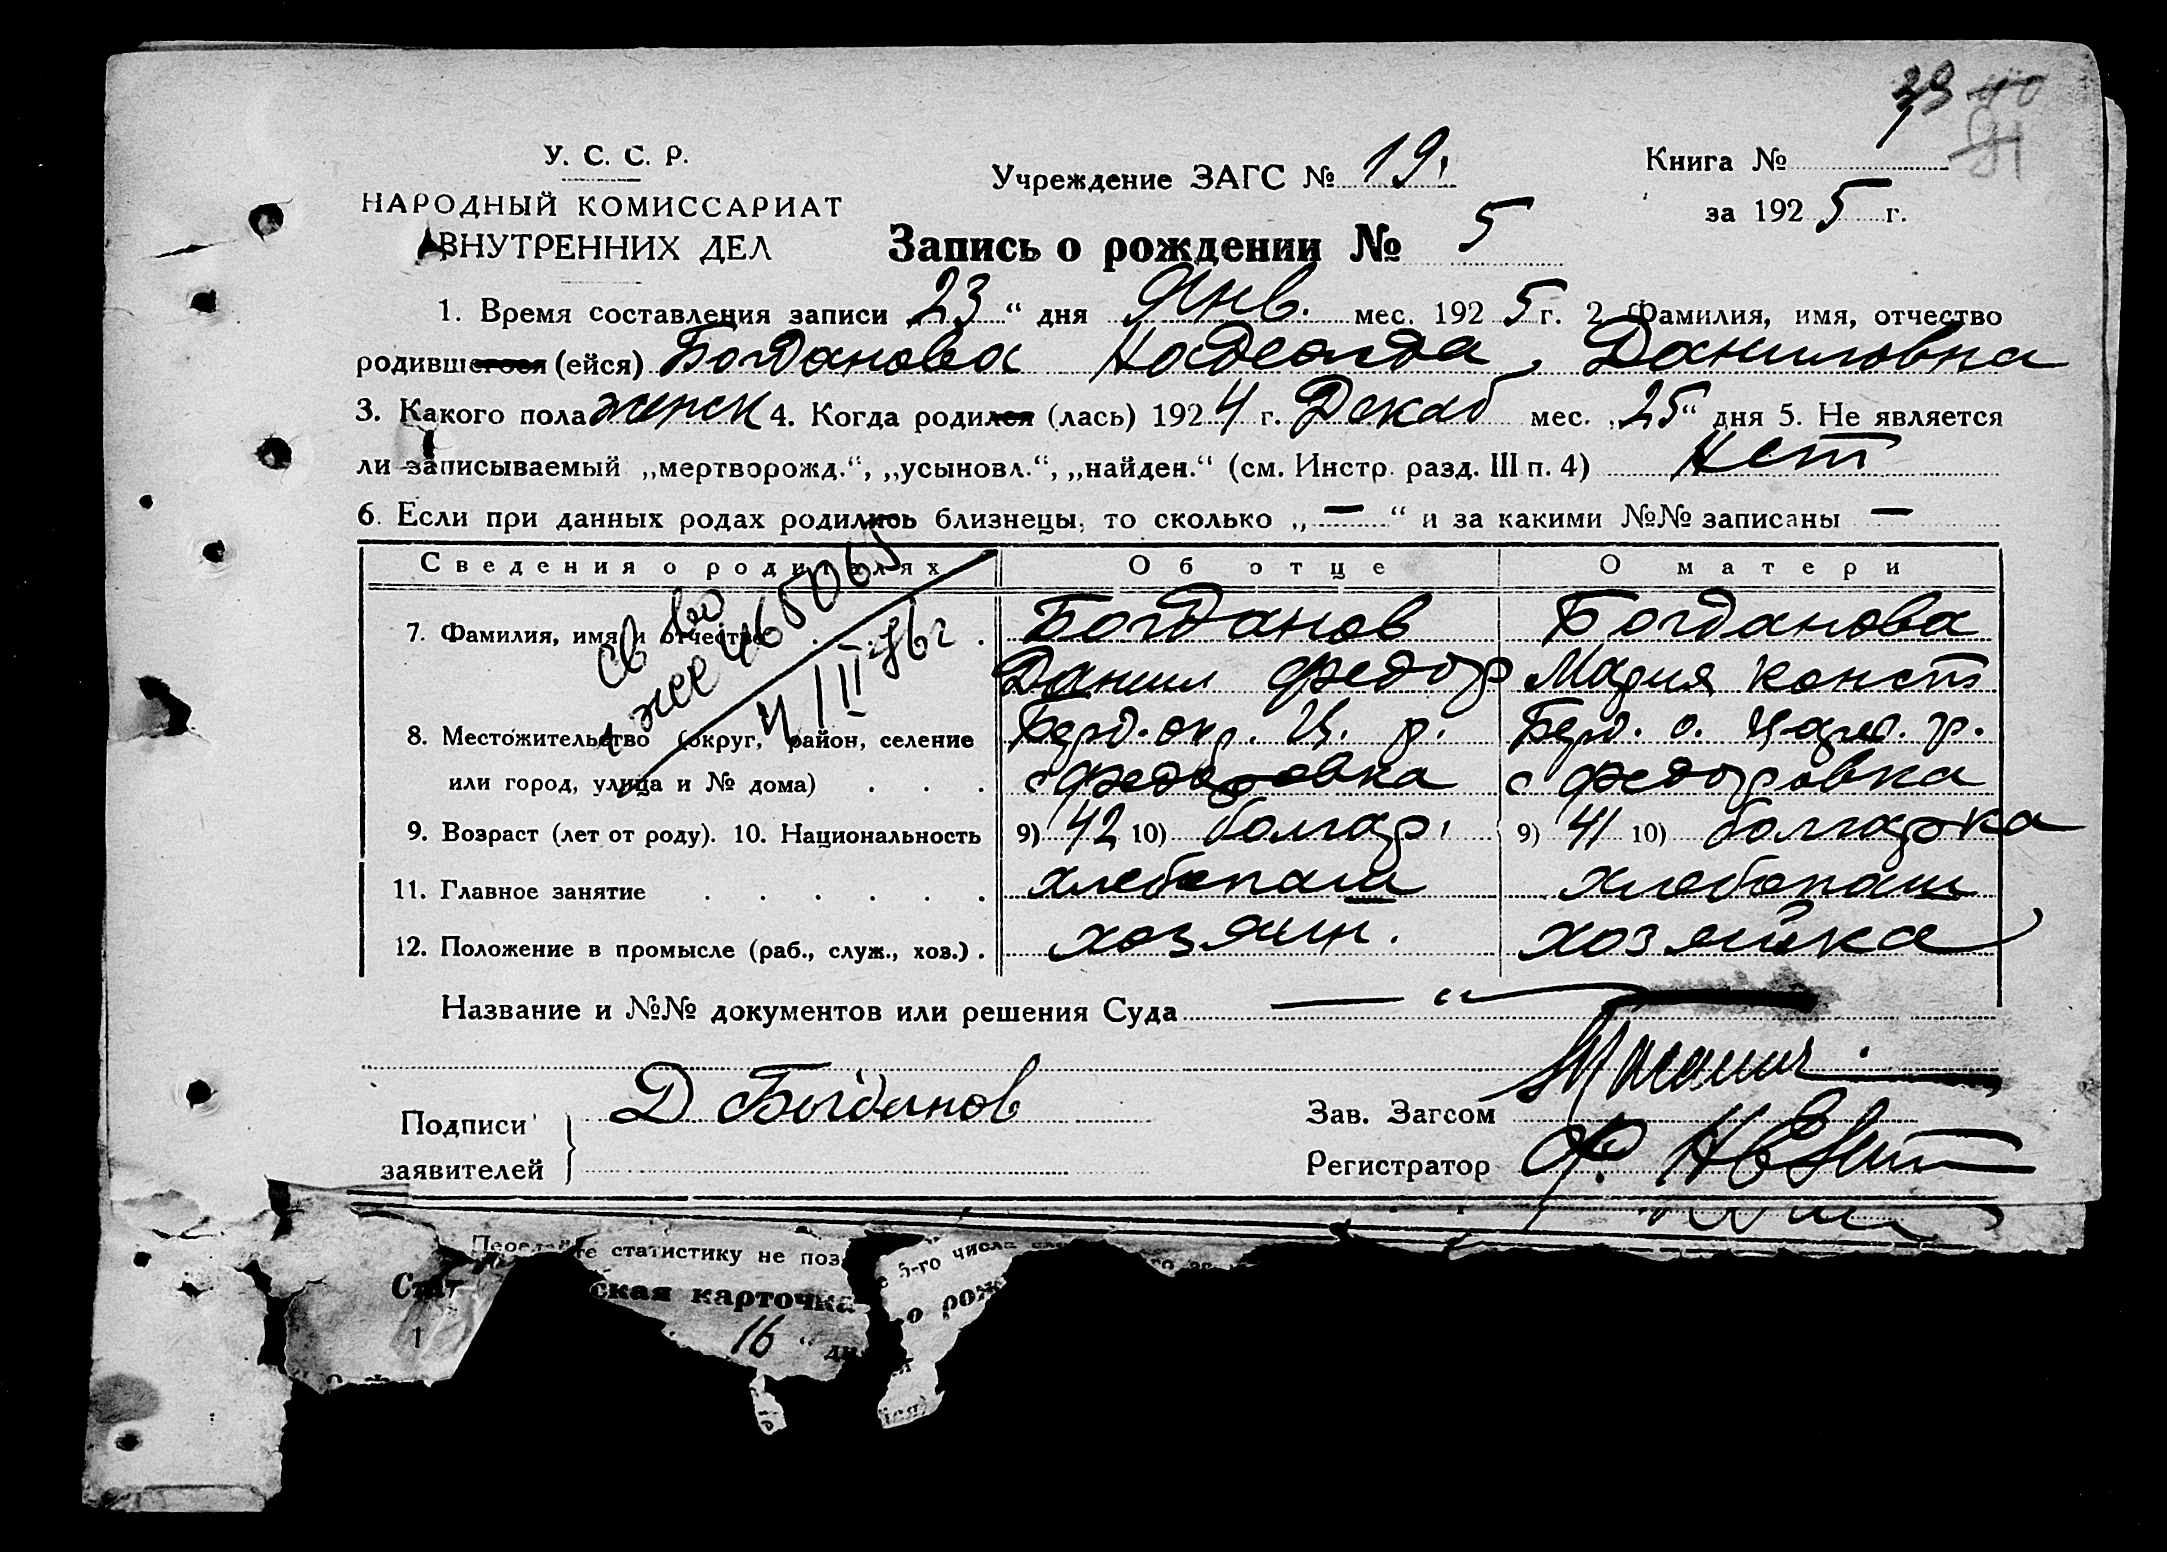 39 40
41
У. С. С. Р.
НАРОДНЫЙ КОМИССАРИАТ
ВНУТРЕННИХ ДЕЛ
Учреждение ЗАГС № 19.
Книга №
за 1925 г.
Запись о рождении № 5
1. Время составления записи „23“ дня Янв. мес. 1925 г. 2 Фамилия, имя, отчество
родившегося (ейся) Богданова Надежда, Даниловна
3. Какого пола женск 4. Когда родился (лась) 1924 г. Декаб мес. „25“ дня 5. Не является
ли записываемый „мертворожд.“, „усыновл.“, „найден.“ (см. Инстр. разд. III п. 4) Нет
6. Если при данных родах родились близнецы, то сколько „—“ и за какими №№ записаны —
Сведения о родителях Об отце О матери
7. Фамилия, имя и отчество . . . Богданов Богданова
Данил Федор Мария Конст
8. Местожительство (округ, район, селение Берд. окр. Ц. р. Берд. о. Царев. р.
или город, улица и № дома) . . . с Федоровка с Федоровка
9. Возраст (лет от роду). 10. Национальность 9) 42 10) болгар. 9) 41 10) болгарка
11. Главное занятие . . . . . . хлебопаш хлебопаш
12. Положение в промысле (раб., служ., хоз.) . хозяин. хозяйка
св во
4650
4/III-76 г
Название и №№ документов или решения Суда — “ —
Подписи
заявителей
Д Богданов
Зав. Загсом
Регистратор
статистику не поз
5-го числа
Стат ская карточка о рож
1 16 “ дн